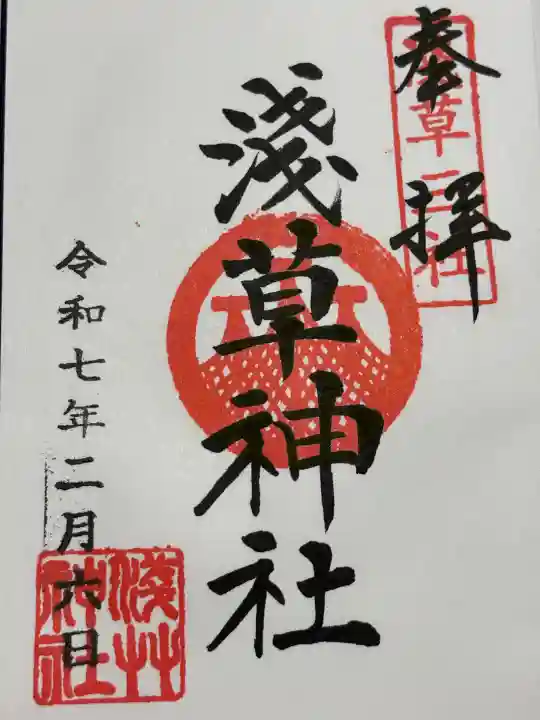 奉拝
浅草三社
淺草神社
令和七年二月六日
淺草
神社